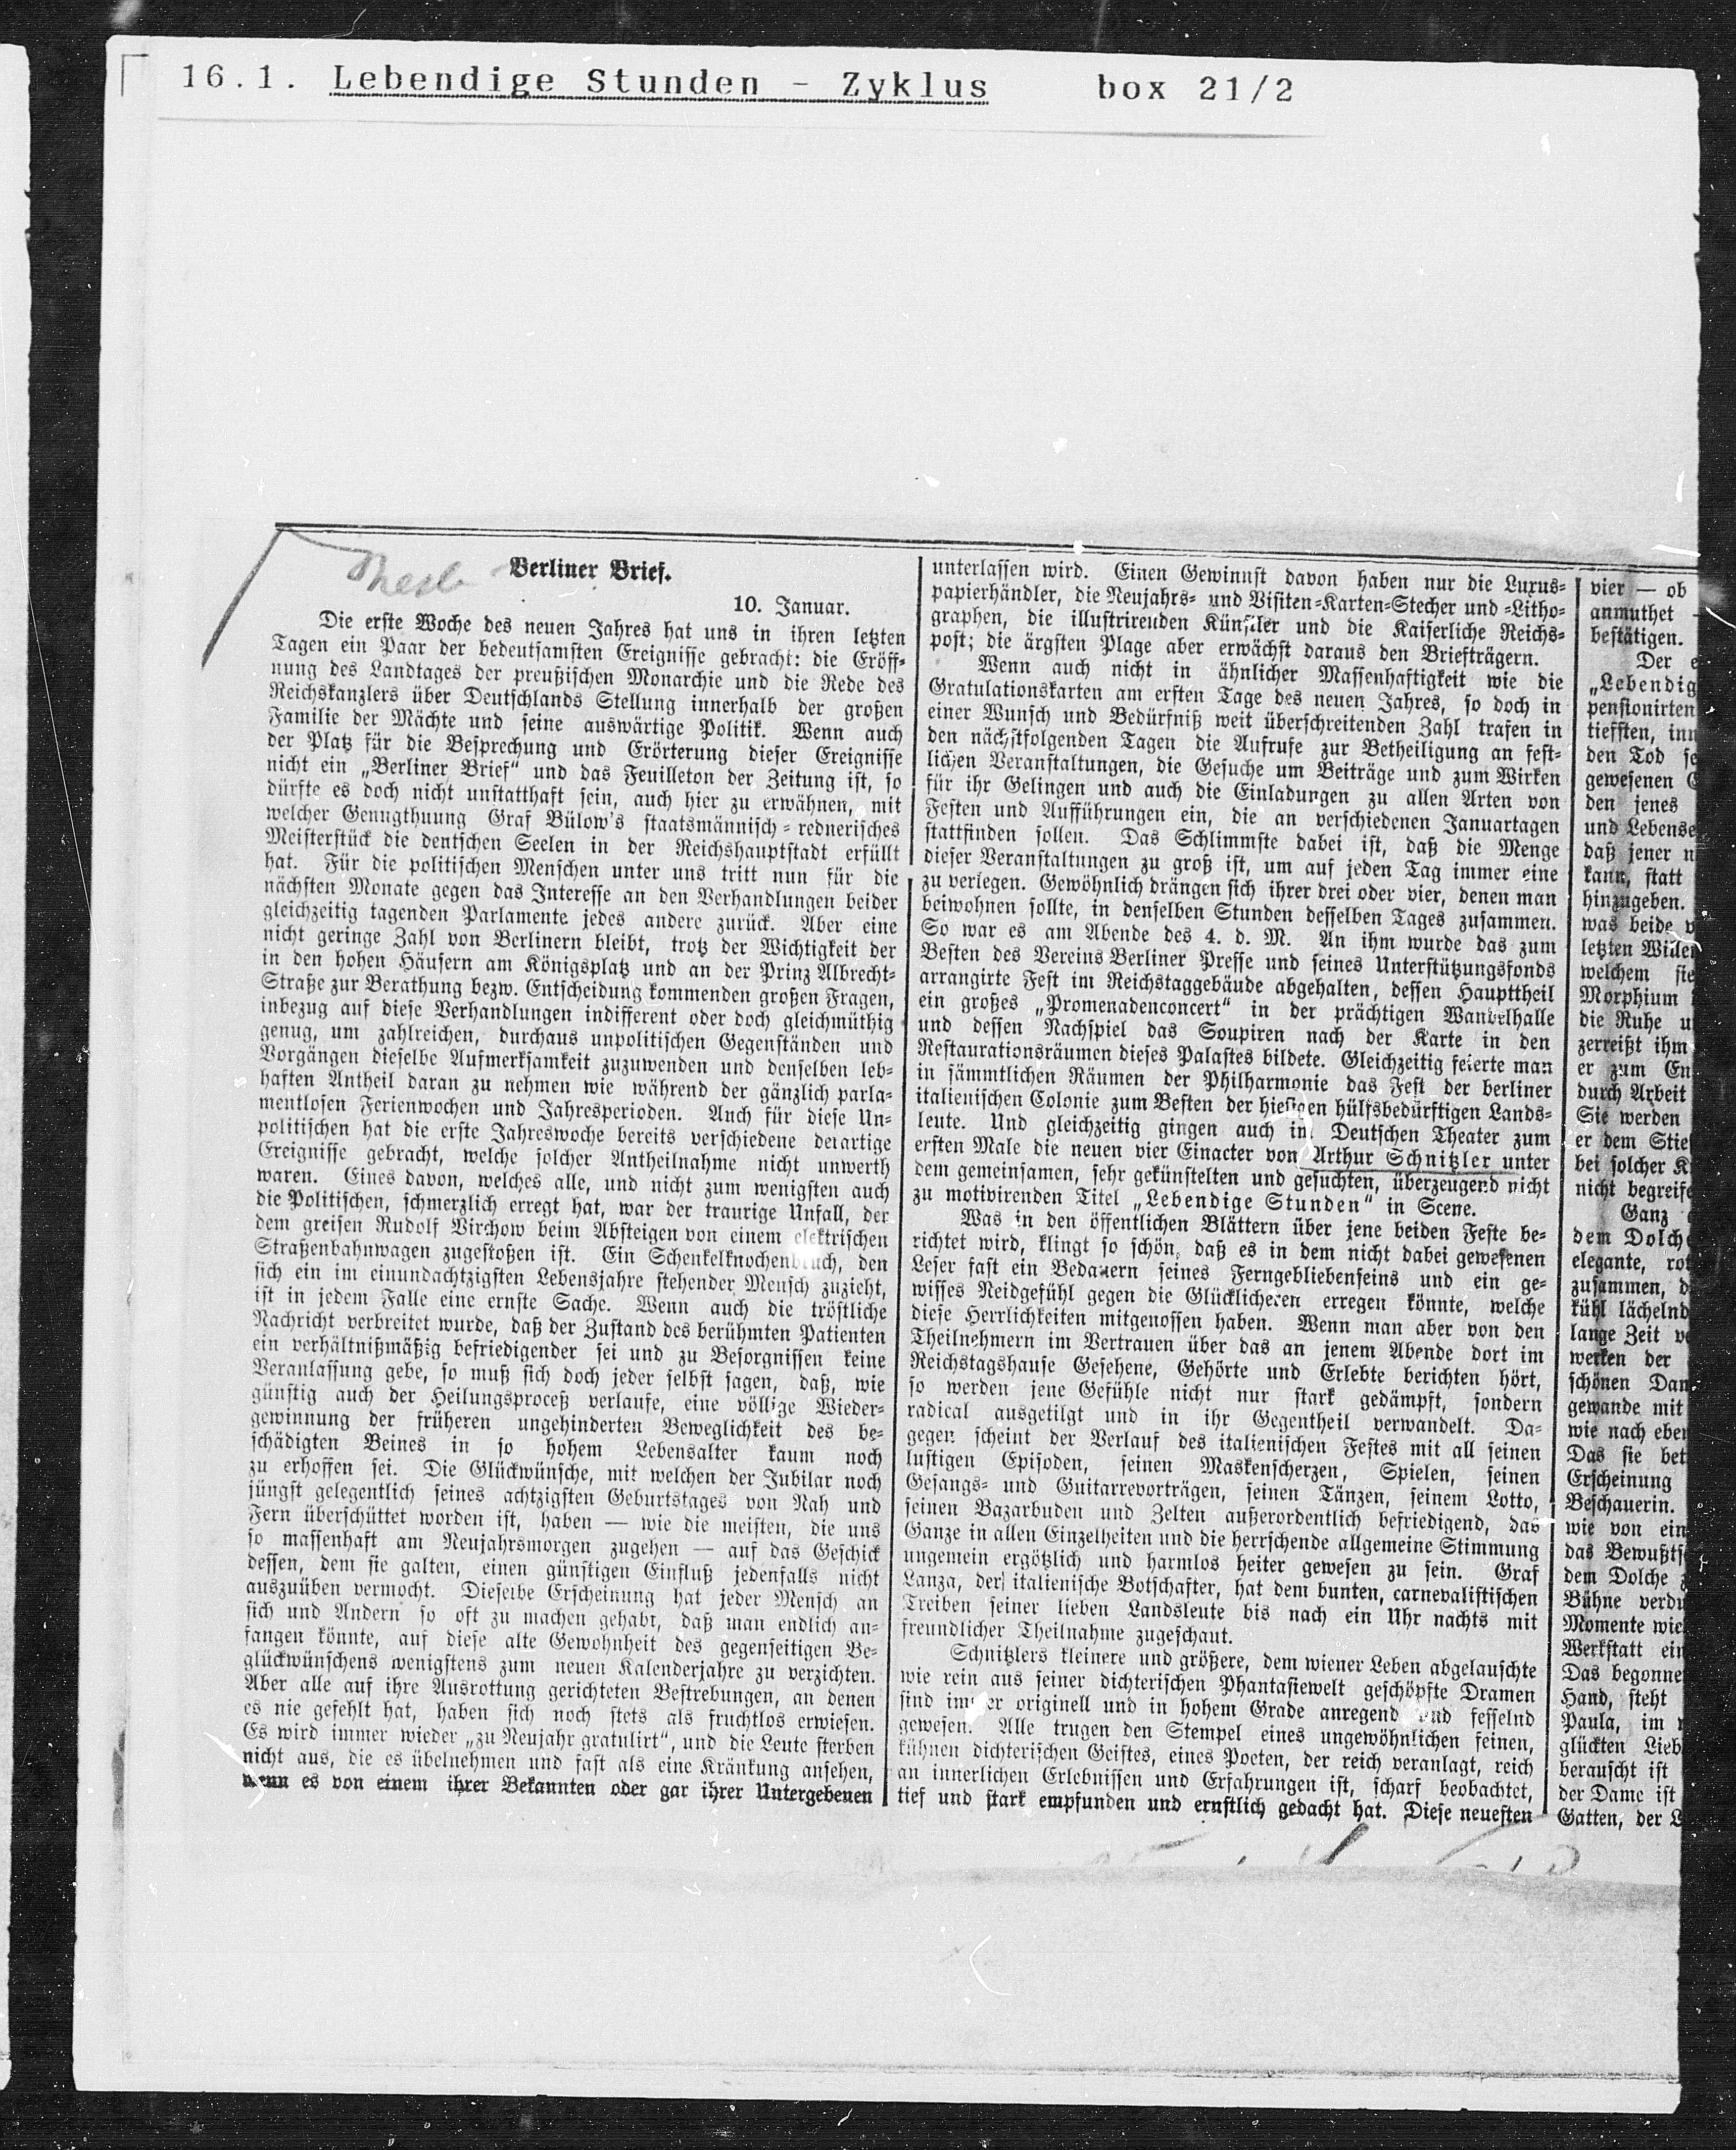 16.1. Lebendige Stunden - Zyklus box 21/2
Berliner Brief.
10. Januar.
Die erste Woche des neuen Jahres hat uns in ihren letzten
Tagen ein Paar der bedeutsamsten Ereignisse gebracht: die Eröff-
nung des Landtages der preußischen Monarchie und die Rede des
Reichskanzlers über Deutschlands Stellung innerhalb der großen
Familie der Mächte und seine auswärtige Politik. Wenn auch
der Platz für die Besprechung und Erörterung dieser Ereignisse
nicht ein „Berliner Brief“ und das Feuilleton der Zeitung ist, so
dürfte es doch nicht unstatthaft sein, auch hier zu erwähnen, mit
welcher Genugthuung Graf Bülow's staatsmännisch-rednerisches
Meisterstück die deutschen Seelen in der Reichshauptstadt erfüllt
hat. Für die politischen Menschen unter uns tritt nun für die
nächsten Monate gegen das Interesse an den Verhandlungen beider
gleichzeitig tagenden Parlamente jedes andere zurück. Aber eine
nicht geringe Zahl von Berlinern bleibt, trotz der Wichtigkeit der
in den hohen Häusern am Königsplatz und an der Prinz Albrecht-
Straße zur Berathung bezw. Entscheidung kommenden großen Fragen,
inbezug auf diese Verhandlungen indifferent oder doch gleichmüthig
genug, um zahlreichen, durchaus unpolitischen Gegenständen und
Vorgängen dieselbe Aufmerksamkeit zuzuwenden und denselben leb-
haften Antheil daran zu nehmen wie während der gänzlich parla-
mentlosen Ferienwochen und Jahresperioden. Auch für diese Un-
politischen hat die erste Jahreswoche bereits verschiedene derartige
Ereignisse gebracht, welche solcher Antheilnahme nicht unwerth
waren. Eines davon, welches alle, und nicht zum wenigsten auch
die Politischen, schmerzlich erregt hat, war der traurige Unfall, der
dem greisen Rudolf Virchow beim Absteigen von einem elektrischen
Straßenbahnwagen zugestoßen ist. Ein Schenkelknochenbruch, den
sich ein im einundachtzigsten Lebensjahre stehender Mensch zuzieht,
ist in jedem Falle eine ernste Sache. Wenn auch die tröstliche
Nachricht verbreitet wurde, daß der Zustand des berühmten Patienten
ein verhältnißmäßig befriedigender sei und zu Besorgnissen keine
Veranlassung gebe, so muß sich doch jeder selbst sagen, daß, wie
günstig auch der Heilungsproceß verlaufe, eine völlige Wieder-
gewinnung der früheren ungehinderten Beweglichkeit des be-
schädigten Beines in so hohem Lebensalter kaum noch
zu erhoffen sei. Die Glückwünsche, mit welchen der Jubilar noch
jüngst gelegentlich seines achtzigsten Geburtstages von Nah und
Fern überschüttet worden ist, haben — wie die meisten, die uns
so massenhaft am Neujahrsmorgen zugehen — auf das Geschick
dessen, dem sie galten, einen günstigen Einfluß jedenfalls nicht
auszuüben vermocht. Dieselbe Erscheinung hat jeder Mensch an
sich und Andern so oft zu machen gehabt, daß man endlich an-
fangen könnte, auf diese alte Gewohnheit des gegenseitigen Be-
glückwünschens wenigstens zum neuen Kalenderjahre zu verzichten.
Aber alle auf ihre Ausrottung gerichteten Bestrebungen, an denen
es nie gefehlt hat, haben sich noch stets als fruchtlos erwiesen.
Es wird immer wieder „zu Neujahr gratulirt“, und die Leute sterben
nicht aus, die es übelnehmen und fast als eine Kränkung ansehen,
wenn es von einem ihrer Bekannten oder gar ihrer Untergebenen
unterlassen wird. Einen Gewinnst davon haben nur die Luxus-
papierhändler, die Neujahrs- und Visiten-Karten-Stecher und -Litho-
graphen, die illustrirenden Künstler und die Kaiserliche Reichs-
post; die ärgsten Plage aber erwächst daraus den Briefträgern.
Wenn auch nicht in ähnlicher Massenhaftigkeit wie die
Gratulationskarten am ersten Tage des neuen Jahres, so doch in
einer Wunsch und Bedürfniß weit überschreitenden Zahl trafen in
den nächstfolgenden Tagen die Aufrufe zur Betheiligung an fest-
lichen Veranstaltungen, die Gesuche um Beiträge und zum Wirken
für ihr Gelingen und auch die Einladungen zu allen Arten von
Festen und Aufführungen ein, die an verschiedenen Januartagen
stattfinden sollen. Das Schlimmste dabei ist, daß die Menge
dieser Veranstaltungen zu groß ist, um auf jeden Tag immer eine
zu verlegen. Gewöhnlich drängen sich ihrer drei oder vier, denen man
beiwohnen sollte, in denselben Stunden desselben Tages zusammen.
So war es am Abende des 4. d. M. An ihm wurde das zum
Besten des Vereins Berliner Presse und seines Unterstützungsfonds
arrangirte Fest im Reichstaggebäude abgehalten, dessen Haupttheil
ein großes „Promenadenconcert“ in der prächtigen Wandelhalle
und dessen Nachspiel das Soupiren nach der Karte in den
Restaurationsräumen dieses Palastes bildete. Gleichzeitig feierte man
in sämmtlichen Räumen der Philharmonie das Fest der berliner
italienischen Colonie zum Besten der hiesigen hülfsbedürftigen Lands-
leute. Und gleichzeitig gingen auch im Deutschen Theater zum
ersten Male die neuen vier Einacter von Arthur Schnitzler unter
dem gemeinsamen, sehr gekünstelten und gesuchten, überzeugend nicht
zu motivirenden Titel „Lebendige Stunden“ in Scene.
Was in den öffentlichen Blättern über jene beiden Feste be-
richtet wird, klingt so schön, daß es in dem nicht dabei gewesenen
Leser fast ein Bedauern seines Ferngebliebenseins und ein ge-
wisses Neidgefühl gegen die Glücklicheren erregen könnte, welche
diese Herrlichkeiten mitgenossen haben. Wenn man aber von den
Theilnehmern im Vertrauen über das an jenem Abende dort im
Reichstagshause Gesehene, Gehörte und Erlebte berichten hört,
so werden jene Gefühle nicht nur stark gedämpft, sondern
radical ausgetilgt und in ihr Gegentheil verwandelt. Da-
gegen scheint der Verlauf des italienischen Festes mit all seinen
lustigen Episoden, seinen Maskenscherzen, Spielen, seinen
Gesangs- und Guitarrevorträgen, seinen Tänzen, seinem Lotto,
seinen Bazarbuden und Zelten außerordentlich befriedigend, das
Ganze in allen Einzelheiten und die herrschende allgemeine Stimmung
ungemein ergötzlich und harmlos heiter gewesen zu sein. Graf
Lanza, der italienische Botschafter, hat dem bunten, carnevalistischen
Treiben seiner lieben Landsleute bis nach ein Uhr nachts mit
freundlicher Theilnahme zugeschaut.
Schnitzlers kleinere und größere, dem wiener Leben abgelauschte
wie rein aus seiner dichterischen Phantasiewelt geschöpfte Dramen
sind immer originell und in hohem Grade anregend und fesselnd
gewesen. Alle trugen den Stempel eines ungewöhnlichen feinen,
kühnen dichterischen Geistes, eines Poeten, der reich veranlagt, reich
an innerlichen Erlebnissen und Erfahrungen ist, scharf beobachtet,
tief und stark empfunden und ernstlich gedacht hat. Diese neuesten
vier — ob
anmuthet
bestätigen.
Der
„Lebendig
pensionirten
tiefsten, inn
den Tod se
gewesenen
den jenes
und Lebense
daß jener n
kann, statt
hinzugeben.
was beide v
letzten Willen
welchem sie
Morphium
die Ruhe u
zerreißt ihm
er zum En
durch Arbeit
Sie werden
er dem Stie
bei solcher K
nicht begreife
Ganz
dem Dolch
elegante, rot
zusammen, d
kühl lächelnd
lange Zeit v
werken der
schönen Dam
gewande mit
wie nach eben
Das sie bet
Erscheinung
Beschauerin.
wie von ein
das Bewußts
dem Dolche
Bühne verdu
Momente wie
Werkstatt ein
Das begonne
Hand, steht
Paula, im
glückten Lieb
berauscht ist
der Dame ist
Gatten, der L